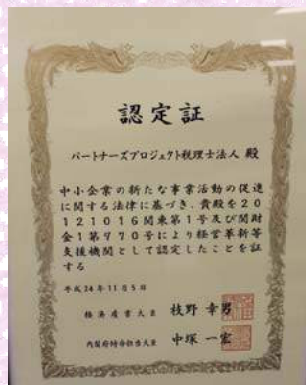 認定証
パートナーズプロジェクト税理士法人 殿
中小企業の新たな事業活動の促進
に関する法律に基づき、貴殿を20
121016関東第1号及び関財
金1第970号により経営革新等
支援機関として認定したことを証
する
平成24年11月5日
経済産業大臣 枝野 幸男
内閣府特命担当大臣 中塚 一宏